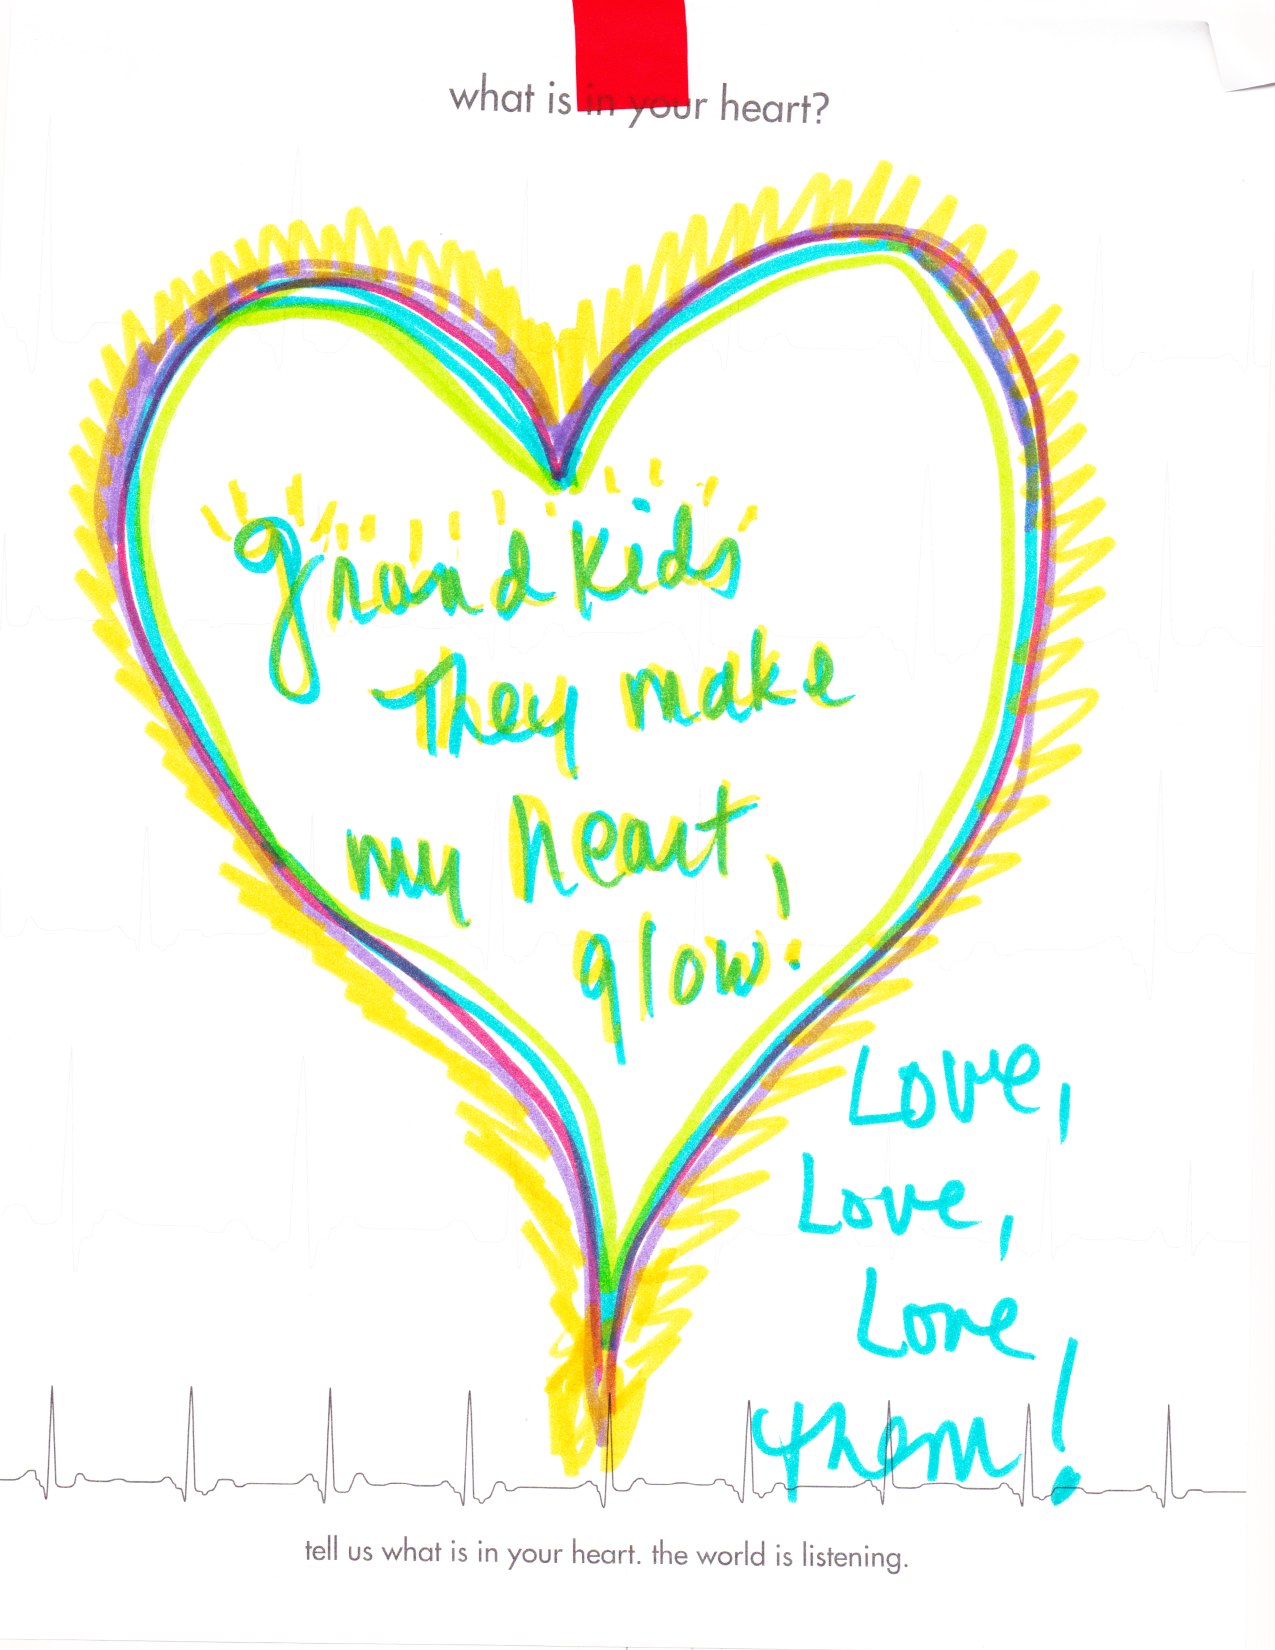 what is in your heart?
Grandkids
They make
my heart,
glow!
Love,
Love,
Love
them!
tell us what is in your heart. the world is listening.